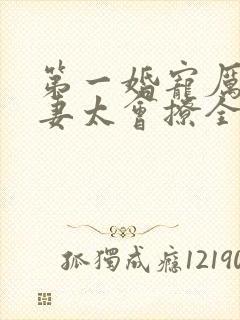 第一婚寵厲
妻太會撩全
孤獨成癮12190